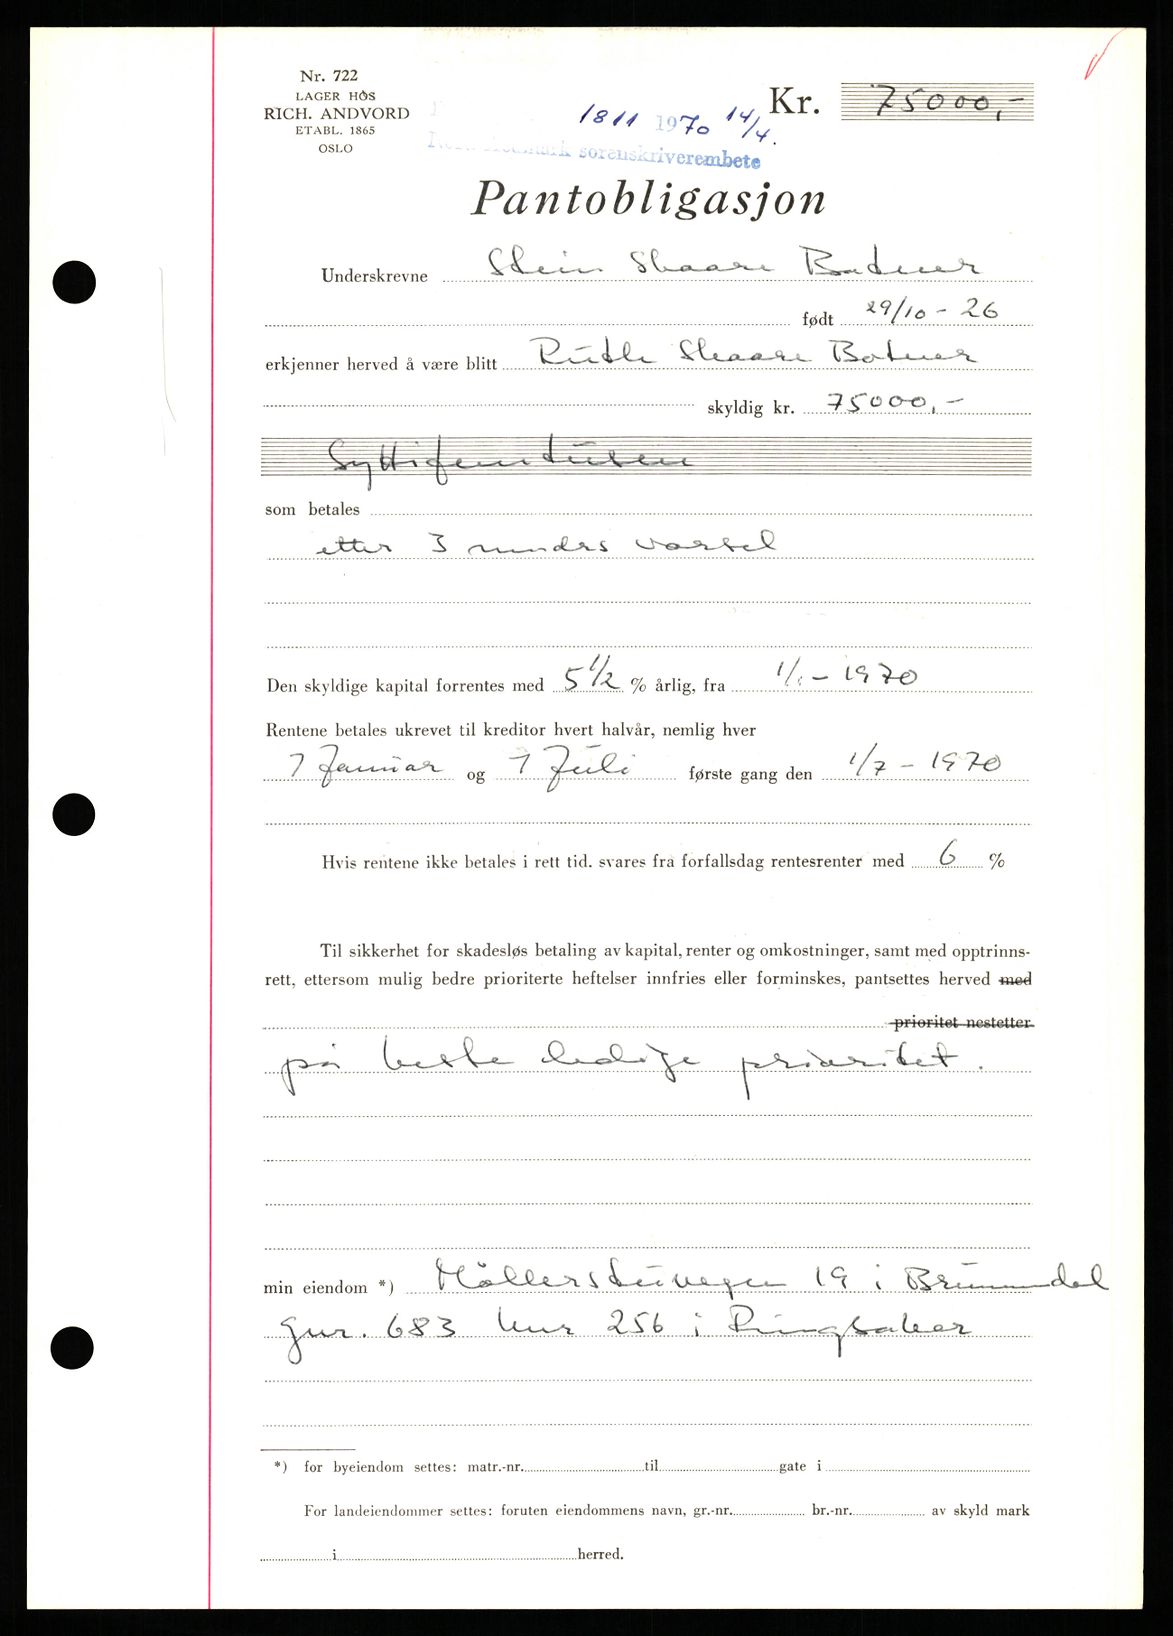 Nr. 722
LAGER HOS
RICH. ANDVORD
ETABL. 1865
OSLO
Kr. 75000,-
1811 1970 14/4.
sorenskriverembete
Pantobligasjon
Underskrevne Stein Skaare Botner
født 29/10-26
erkjenner herved å være blitt Ruth Skaare Botner
skyldig kr. 75000,-
Syttifemtusen
som betales
etter 3 mndrs varsel
Den skyldige kapital forrentes med 5 1/2 % årlig, fra 1/1-1970
Rentene betales ukrevet til kreditor hvert halvår, nemlig hver
1 Januar og 1 Juli første gang den 1/7-1970
Hvis rentene ikke betales i rett tid. svares fra forfallsdag rentesrenter med 6 %
Til sikkerhet for skadesløs betaling av kapital, renter og omkostninger, samt med opptrinns-
rett, ettersom mulig bedre prioriterte heftelser innfries eller forminskes, pantsettes herved med
prioritet nestetter
på beste ledige prioritet.
min eiendom *) Møllerstuvegen 19 i Brumundal
gnr. 683 bnr 256 i Ringsaker
*) for byeiendom settes: matr.-nr. til gate i
For landeiendommer settes: foruten eiendommens navn, gr.-nr. br.-nr. av skyld mark
i herred.